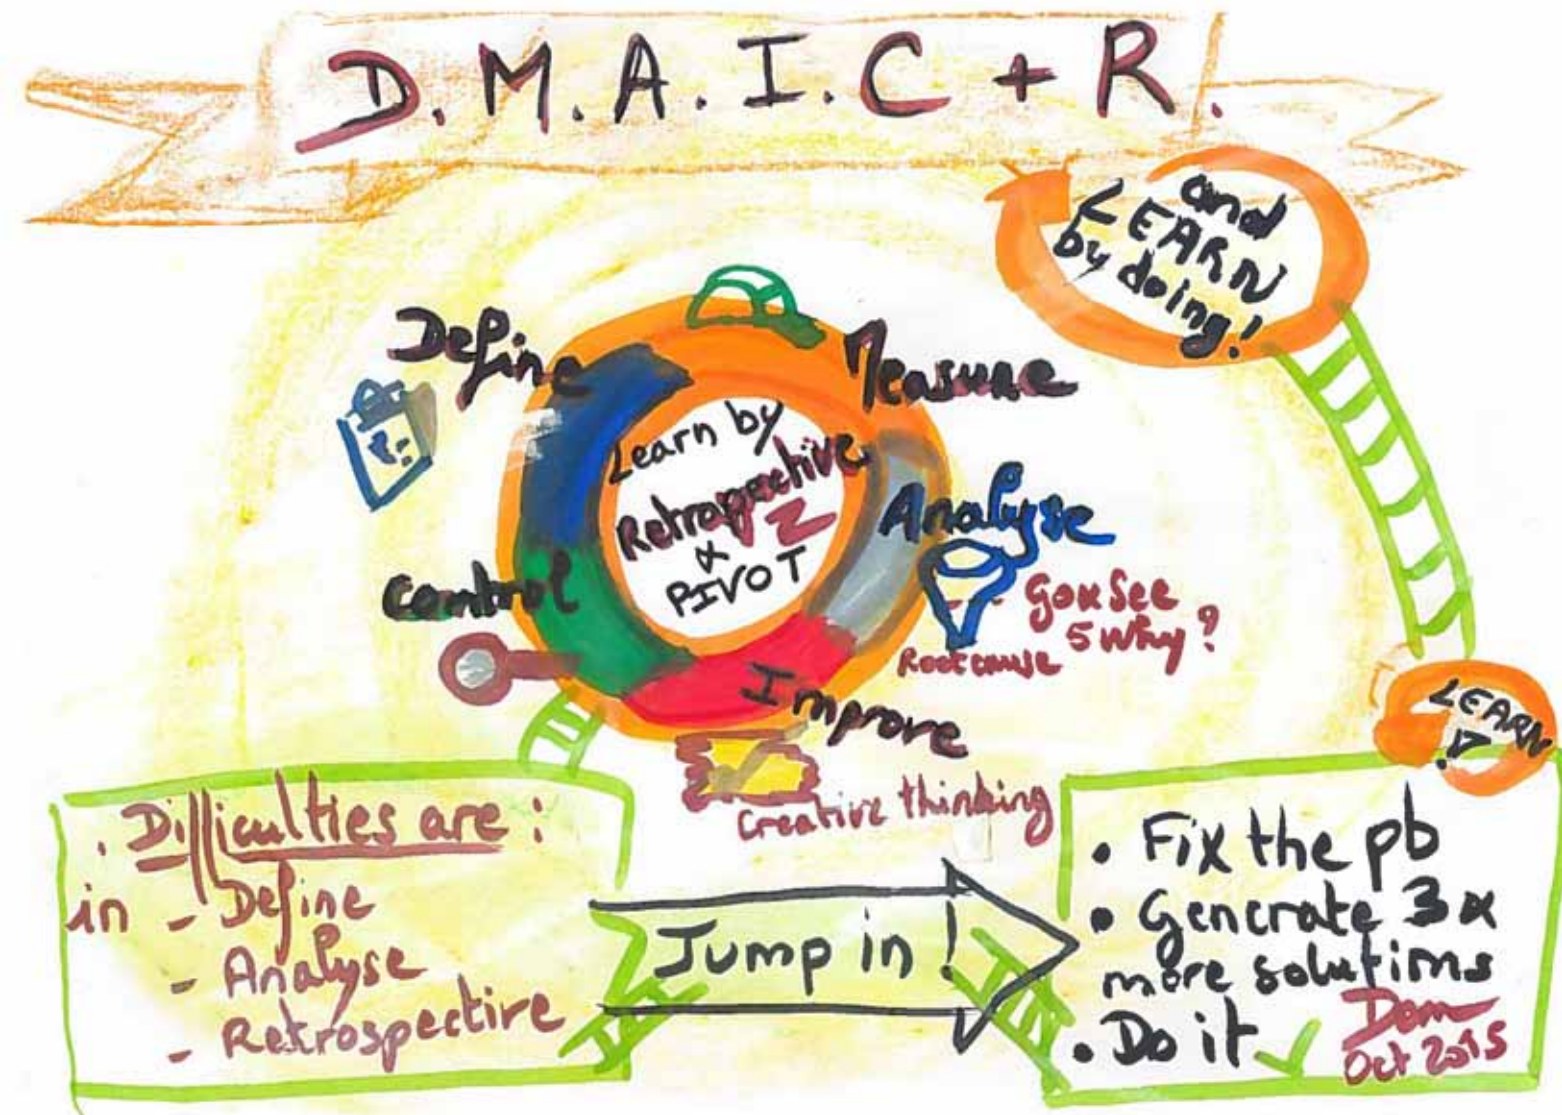 D.M.A.I.C + R.
and
LEARN
by doing!
Define
Measure
Learn by
Retrospective
&
PIVOT
Analyse
Go & See
5 Why ?
Root cause
Control
Improve
Creative thinking
LEARN
. Difficulties are :
in - Define
- Analyse
- Retrospective
Jump in !
• Fix the pb
• Generate 3 &
more solutions
• Do it
Dom
Oct 2015